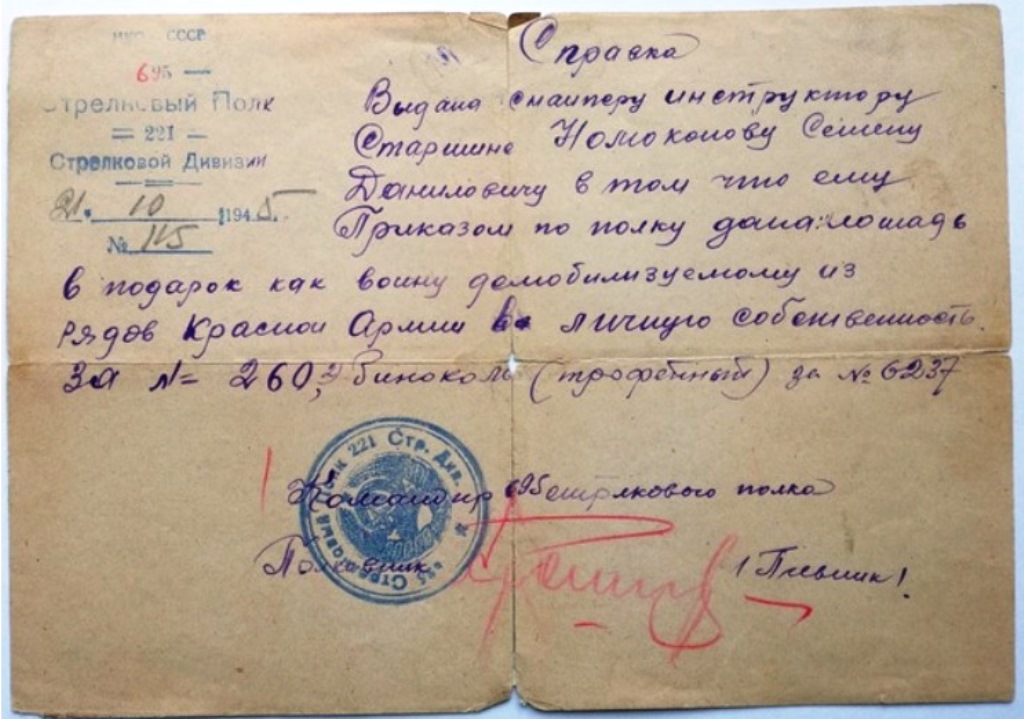 НКО СССР
695 —
Стрелковый Полк
= 221 —
Стрелковой Дивизии
21. 10 1945.
№ 115
Справка
Выдана снайперу инструктору
Старшине Номоконову Семену
Даниловичу в том что ему
Приказом по полку дана лошадь
в подарок как воину демобилизуемому из
рядов Красной Армии в личную собственность
за №= 260, и бинокль (трофейный) за № 6237
Командир 695 стрелкового полка
Полковник
695 Стрелковый Полк 221 Стр. Див.